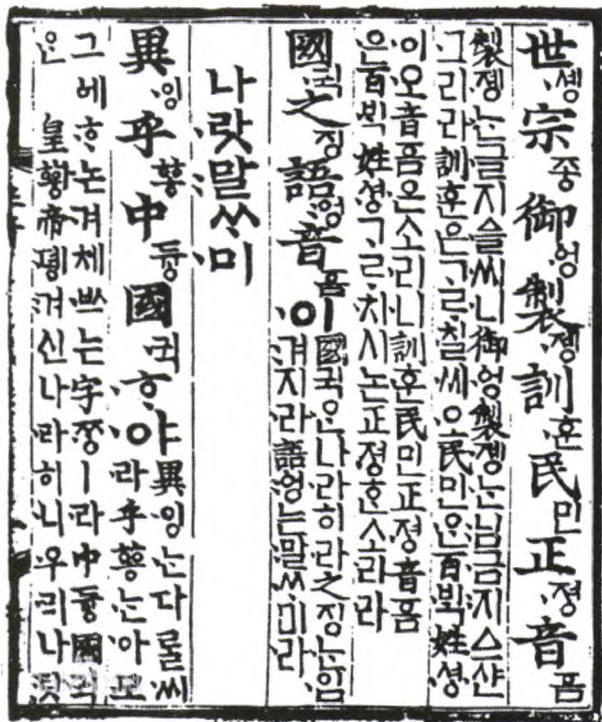 世·솅宗종御·엉製·졩訓·훈民민正·졍音ᅙᅳᆷ
製·졩·ᄂᆞᆫ·글지·ᅀᅳᆯ·씨·니御·엉製·졩·ᄂᆞᆫ:님·금:지·ᅀᅳ샨
·그·리·라訓·훈·은ᄀᆞᄅᆞ·칠·씨·오民민·ᄋᆞᆫ百·ᄇᆡᆨ姓·셩
·이·오音ᅙᅳᆷ·은소·리·니訓·훈民민正·졍音ᅙᅳᆷ
·은百·ᄇᆡᆨ姓·셩ᄀᆞᄅᆞ·치·시논正·졍ᄒᆞᆫ소·리·라
國·귁之징語:엉音ᅙᅳᆷ·이
國·귁·ᄋᆞᆫ나·라히·라之징·ᄂᆞᆫ·입
·겨지·라語:엉·는:말ᄊᆞ미·라
나·랏:말ᄊᆞ·미
異·잉乎ᅘᅩᆼ中듕國·귁·ᄒᆞ·야
異·잉·ᄂᆞᆫ다ᄅᆞᆯ·씨
·라乎ᅘᅩᆼ·ᄂᆞᆫ:아·모
그ᅌᅦ·ᄒᆞ논·겨체·ᄡᅳ·는字·ᄍᆞᆼㅣ·라中듕國·귁
·ᄋᆞᆫ皇ᅘᅪᆼ帝·뎽:겨신나·라히·니·우·리나·랏